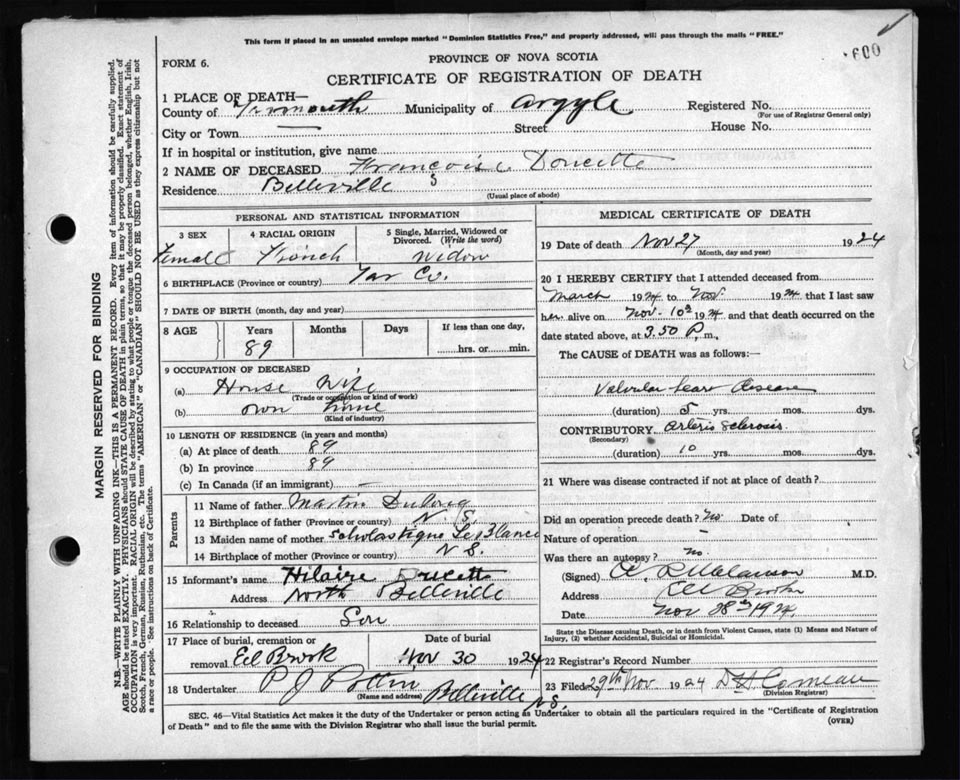 This form if placed in an unsealed envelope marked "Dominion Statistics Free," and properly addressed, will pass through the mails "FREE."
FORM 6.
PROVINCE OF NOVA SCOTIA
CERTIFICATE OF REGISTRATION OF DEATH
1 PLACE OF DEATH—
County of Yarmouth Municipality of Argyle Registered No.
(For use of Registrar General only)
City or Town Street House No.
If in hospital or institution, give name
2 NAME OF DECEASED Francoise Doucette
Residence Belleville
(Usual place of abode)
PERSONAL AND STATISTICAL INFORMATION
3 SEX 4 RACIAL ORIGIN 5 Single, Married, Widowed or Divorced. (Write the word)
Female French Widow
6 BIRTHPLACE (Province or country) Yar Co.
7 DATE OF BIRTH (month, day and year)
8 AGE Years Months Days If less than one day,
89 hrs. or min.
9 OCCUPATION OF DECEASED
(a) House Wife
(Trade or occupation or kind of work)
(b) own home
(Kind of industry)
10 LENGTH OF RESIDENCE (in years and months)
(a) At place of death 89
(b) In province 89
(c) In Canada (if an immigrant) —
Parents
11 Name of father Martin
12 Birthplace of father (Province or country) N. S.
13 Maiden name of mother Scholastique LeBlanc
14 Birthplace of mother (Province or country) N S.
15 Informant's name Hilaire Doucette
Address North Belleville
16 Relationship to deceased Son
17 Place of burial, cremation or Date of burial
removal Eel Brook Nov 30 1924
18 Undertaker P J Pottier Belleville N S.
(Name and address)
MEDICAL CERTIFICATE OF DEATH
19 Date of death Nov 27 1924
(Month, day and year)
20 I HEREBY CERTIFY that I attended deceased from
March 1924 to Nov. 1924 that I last saw
her alive on Nov. 10th 1924 and that death occurred on the
date stated above, at 3.50 P. m.,
The CAUSE of DEATH was as follows:—
Valvular heart disease
(duration) 5 yrs. mos. dys.
CONTRIBUTORY Arterio Sclerosis
(Secondary)
(duration) 10 yrs. mos. dys.
21 Where was disease contracted if not at place of death?
Did an operation precede death? no Date of
Nature of operation —
Was there an autopsy? no
(Signed) M.D.
Address Eel Brook
Date Nov 28th 1924
State the Disease causing Death, or in death from Violent Causes, state (1) Means and Nature of
Injury, (2) whether Accidental, Suicidal or Homicidal.
22 Registrar's Record Number
23 Filed 29th Nov 1924 D H Comeau
(Division Registrar)
SEC. 46—Vital Statistics Act makes it the duty of the Undertaker or person acting as Undertaker to obtain all the particulars required in the "Certificate of Registration
of Death" and to file the same with the Division Registrar who shall issue the burial permit.
(OVER)
MARGIN RESERVED FOR BINDING
N.B.—WRITE PLAINLY WITH UNFADING INK—THIS IS A PERMANENT RECORD. Every item of information should be carefully supplied.
AGE should be stated EXACTLY. PHYSICIANS should STATE CAUSE OF DEATH in plain terms, so that it may be properly classified. Exact statement of
OCCUPATION is very important. RACIAL ORIGIN will be described by stating to what people or tongue the deceased person belonged, whether English, Irish,
Scotch, French, German, Russian, Ruthenian, etc. The terms "AMERICAN" or "CANADIAN" SHOULD NOT BE USED as they express citizenship but not
a race or people. See instructions on back of Certificate.